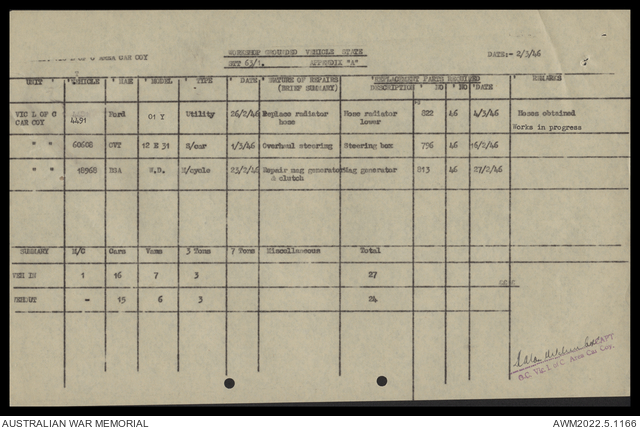 WORKSHOP GROUNDED VEHICLE STATE
CAR COY
RET 63/1. APPENDIX "A" DATE:- 2/3/46
UNIT VEHICLE MAKE MODEL TYPE DATE NATURE OF REPAIRS REPLACEMENT PARTS RECEIVED REMARKS
(BRIEF SUMMARY) DESCRIPTION NO NO DATE
VIC L OF C Ford 01 Y Utility 26/2/46 Replace radiator Hose radiator 822 46 4/3/46 Hoses obtained
CAR COY 4491 hose lower
Works in progress
" " 60608 12 E 31 S/car 1/3/46 Overhaul steering Steering box 796 46 16/2/46
" " 18968 BSA W.D. M/cycle 23/2/46 Repair mag generator Mag generator 813 46 27/2/46
& clutch
SUMMARY M/C Cars Vans 3 Tons 7 Tons Miscellaneous Total
VEH IN 1 16 7 3 27
- 15 6 3 24
CAPT
O.C. Vic L of C Area Car Coy.
AUSTRALIAN WAR MEMORIAL AWM2022.5.1166